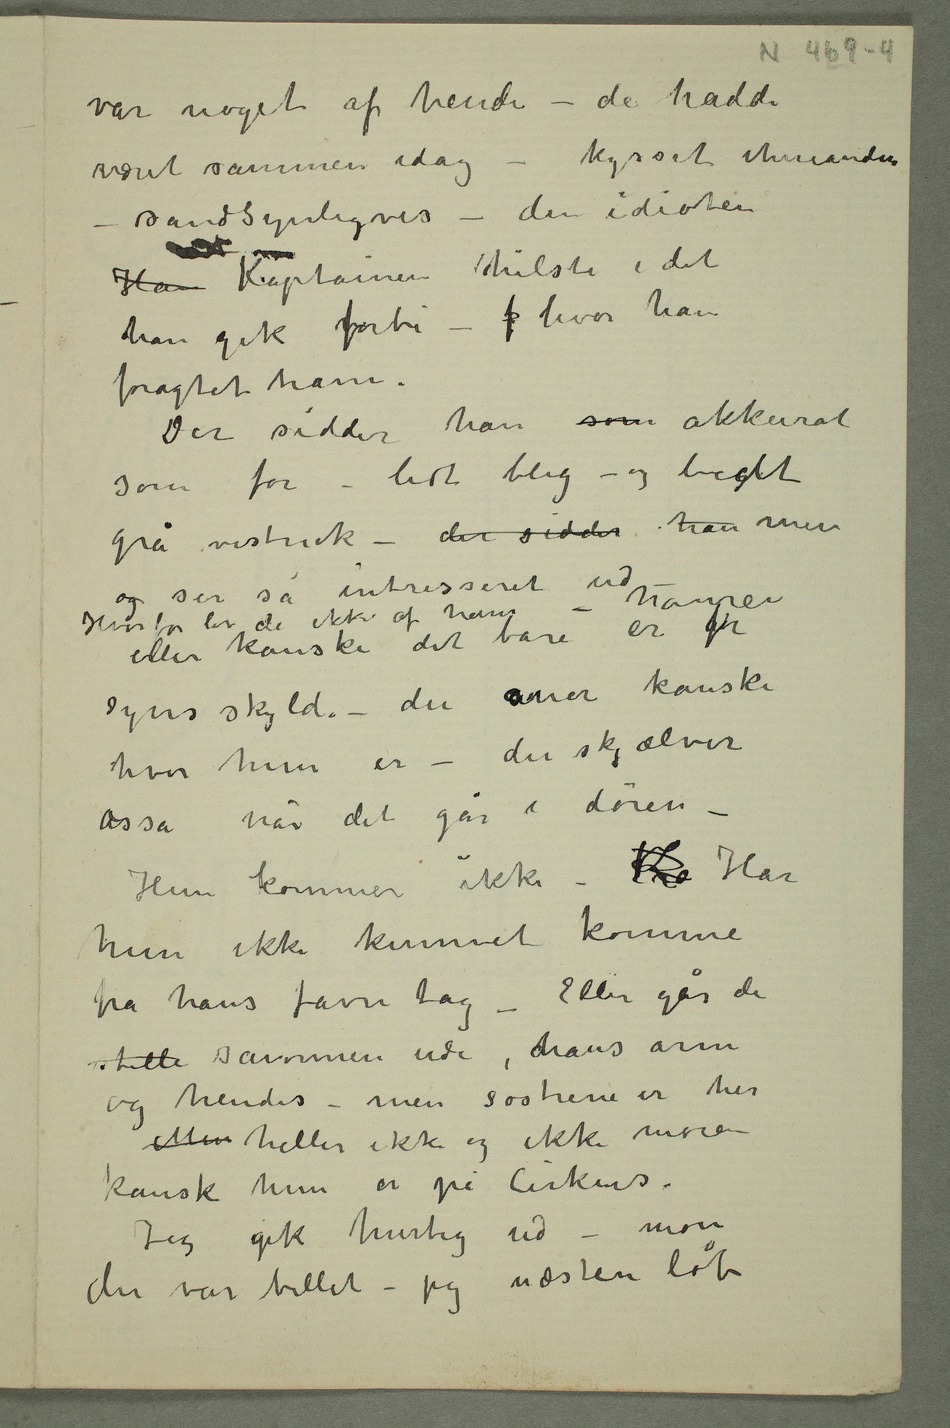 N 469-4
var noget af hende – de hadde
været sammen idag – kysset hinanden
– sandsynligvis – den idioten
Han Kaptainen hilste i det
han gik forbi – f hvor han
foragtet ham.
Der sidder han som akkurat
som før – lidt bleg – og
grå – der sidder han men
og ser så intresseret ud –
Hvorfor ler de ikke af ham – hanrei
eller kanske det bare er for
syns skyld. – du aner kanske
hvor hun er – du skjælver
osså når det går i døren –
Hun kommer ikke – Har
hun ikke kunnet komme
fra hans favntag – Eller går de
stille sammen ude, hans arm
og hendes – men søstrene er her
heller ikke og ikke moren
kansk hun er på Cirkus.
Jeg gik hurtig ud – mon
der var billet – jeg næsten løb